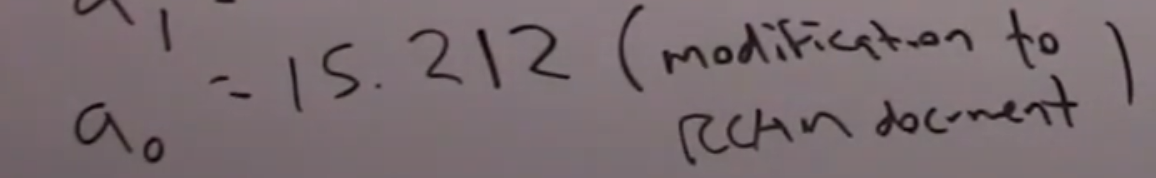 a₁
a₀ = 15.212 (modification to
RCHN document)